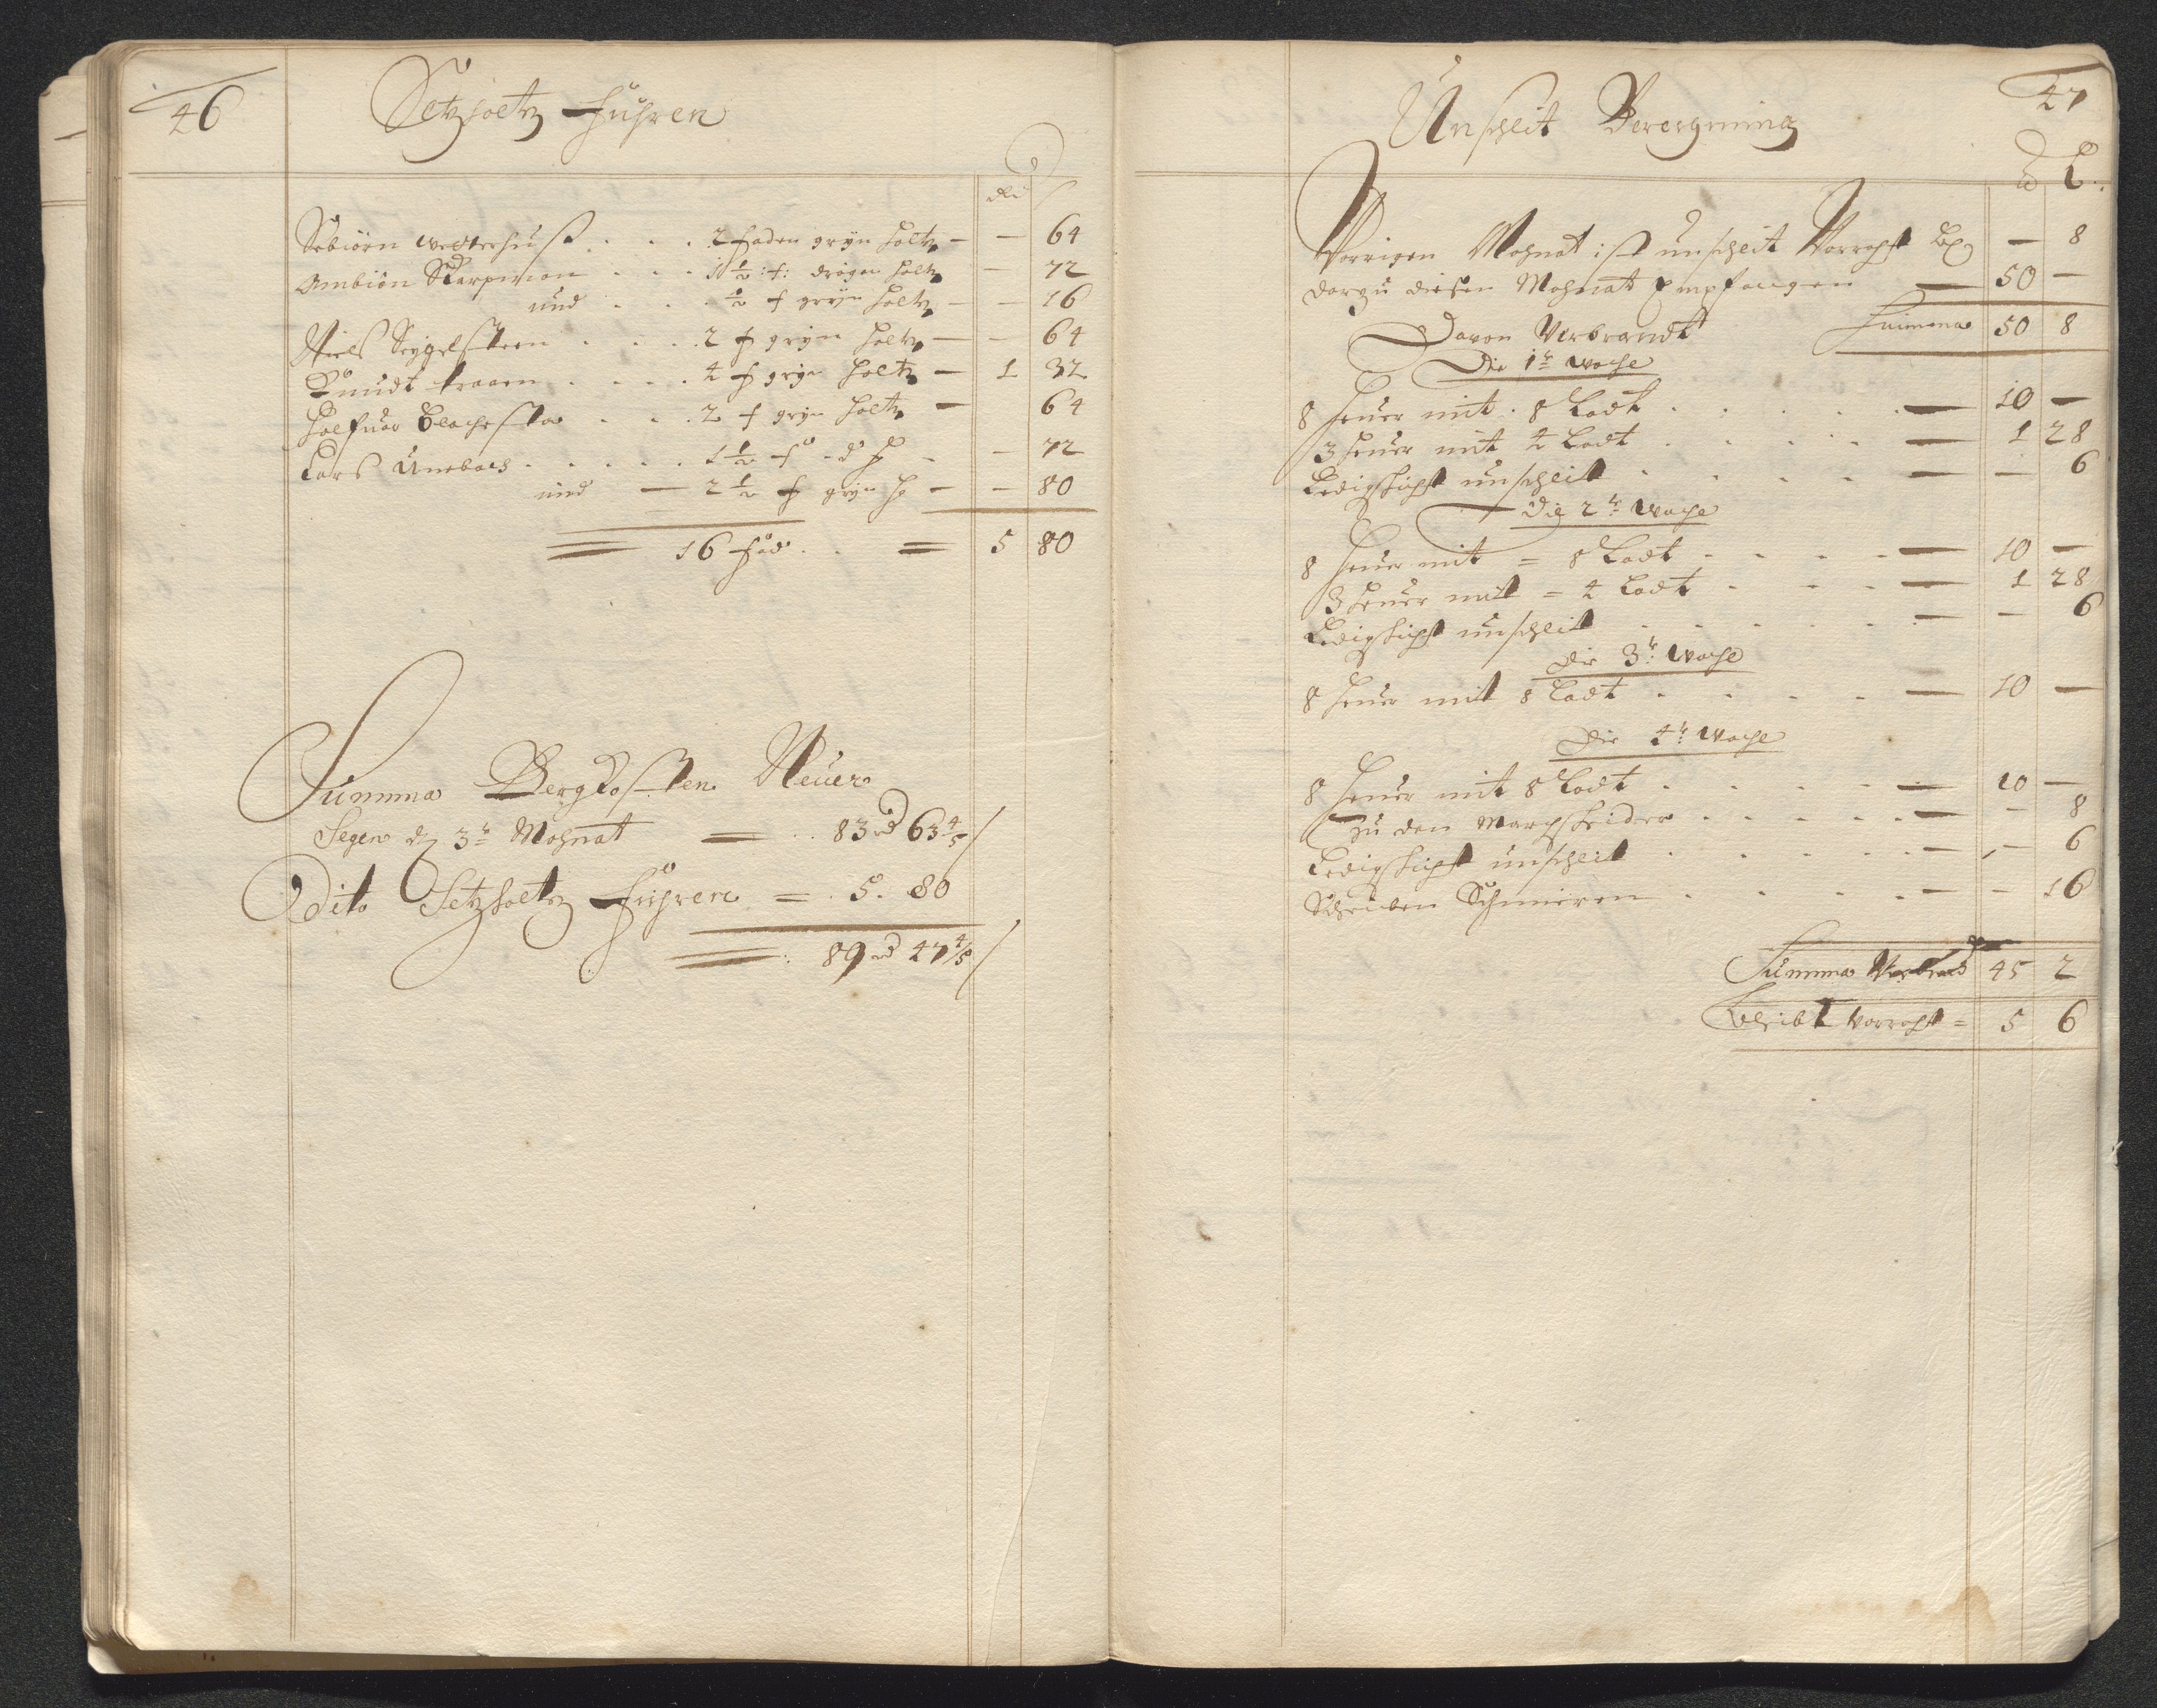 46
Setzholtz führen
rdl
Sebiörn Westerhuß . . . 2 faden gryn holtz — — 64
Ambiön Skarpmoen . . . 1 1/2 : f: drögen holtz — 72
und . . . 1/2 f gryn holtz — — 16
Niels Seygelsteen . . . . 2 f gryn holtz — — 64
Knudt Fraaen . . . . 4 f gryn holtz — 1 32
Halfuor . . . 2 f gryn holtz — 64
Lars Unebars . . . . . 1 1/2 f d h — — 72
und — 2 1/2 f gryn h — — 80
16 fad . . = 5 80
Summa Bergkosten Neuer
Segen d 3te Mohnat — 83 rd 63 4/5
Dito Setzholtz führen = 5. 80
89 rd 47 4/5
47
Unschleit Berergnung
℔ L.
Vorrigen Mohnat ist unschleit Vorraht — 8
darzu diesen Mohnat Empfangen — 50 —
Summa 50 8
Davon Verbrandt
Die 1te Woche
8 heuer mit . 8 Lodt . . . . . — 10 —
3 heuer mit 4 Lodt . . . . — 1 28
Ledigschicht unschleit . . . . — — 6
Die 2te Woche
8 heuer mit = 8 Lodt . . . . — 10 —
3 heuer mit = 4 Lodt . . . — 1 28
Ledigschicht unschleit . . . . . — — 6
Die 3te Woche
8 heuer mit 8 Lodt . . . . — 10 —
Die 4te Woche
8 heuer mit 8 Lodt . . . . — 10 —
Zu den Marchscheider . . . . . — — 8
Ledigschicht unschleit . . . . . — — 6
Scheiben Schmieren . . . . — — 16
Summa Verbrand 45 2
Bleibt Vorraht = 5 6